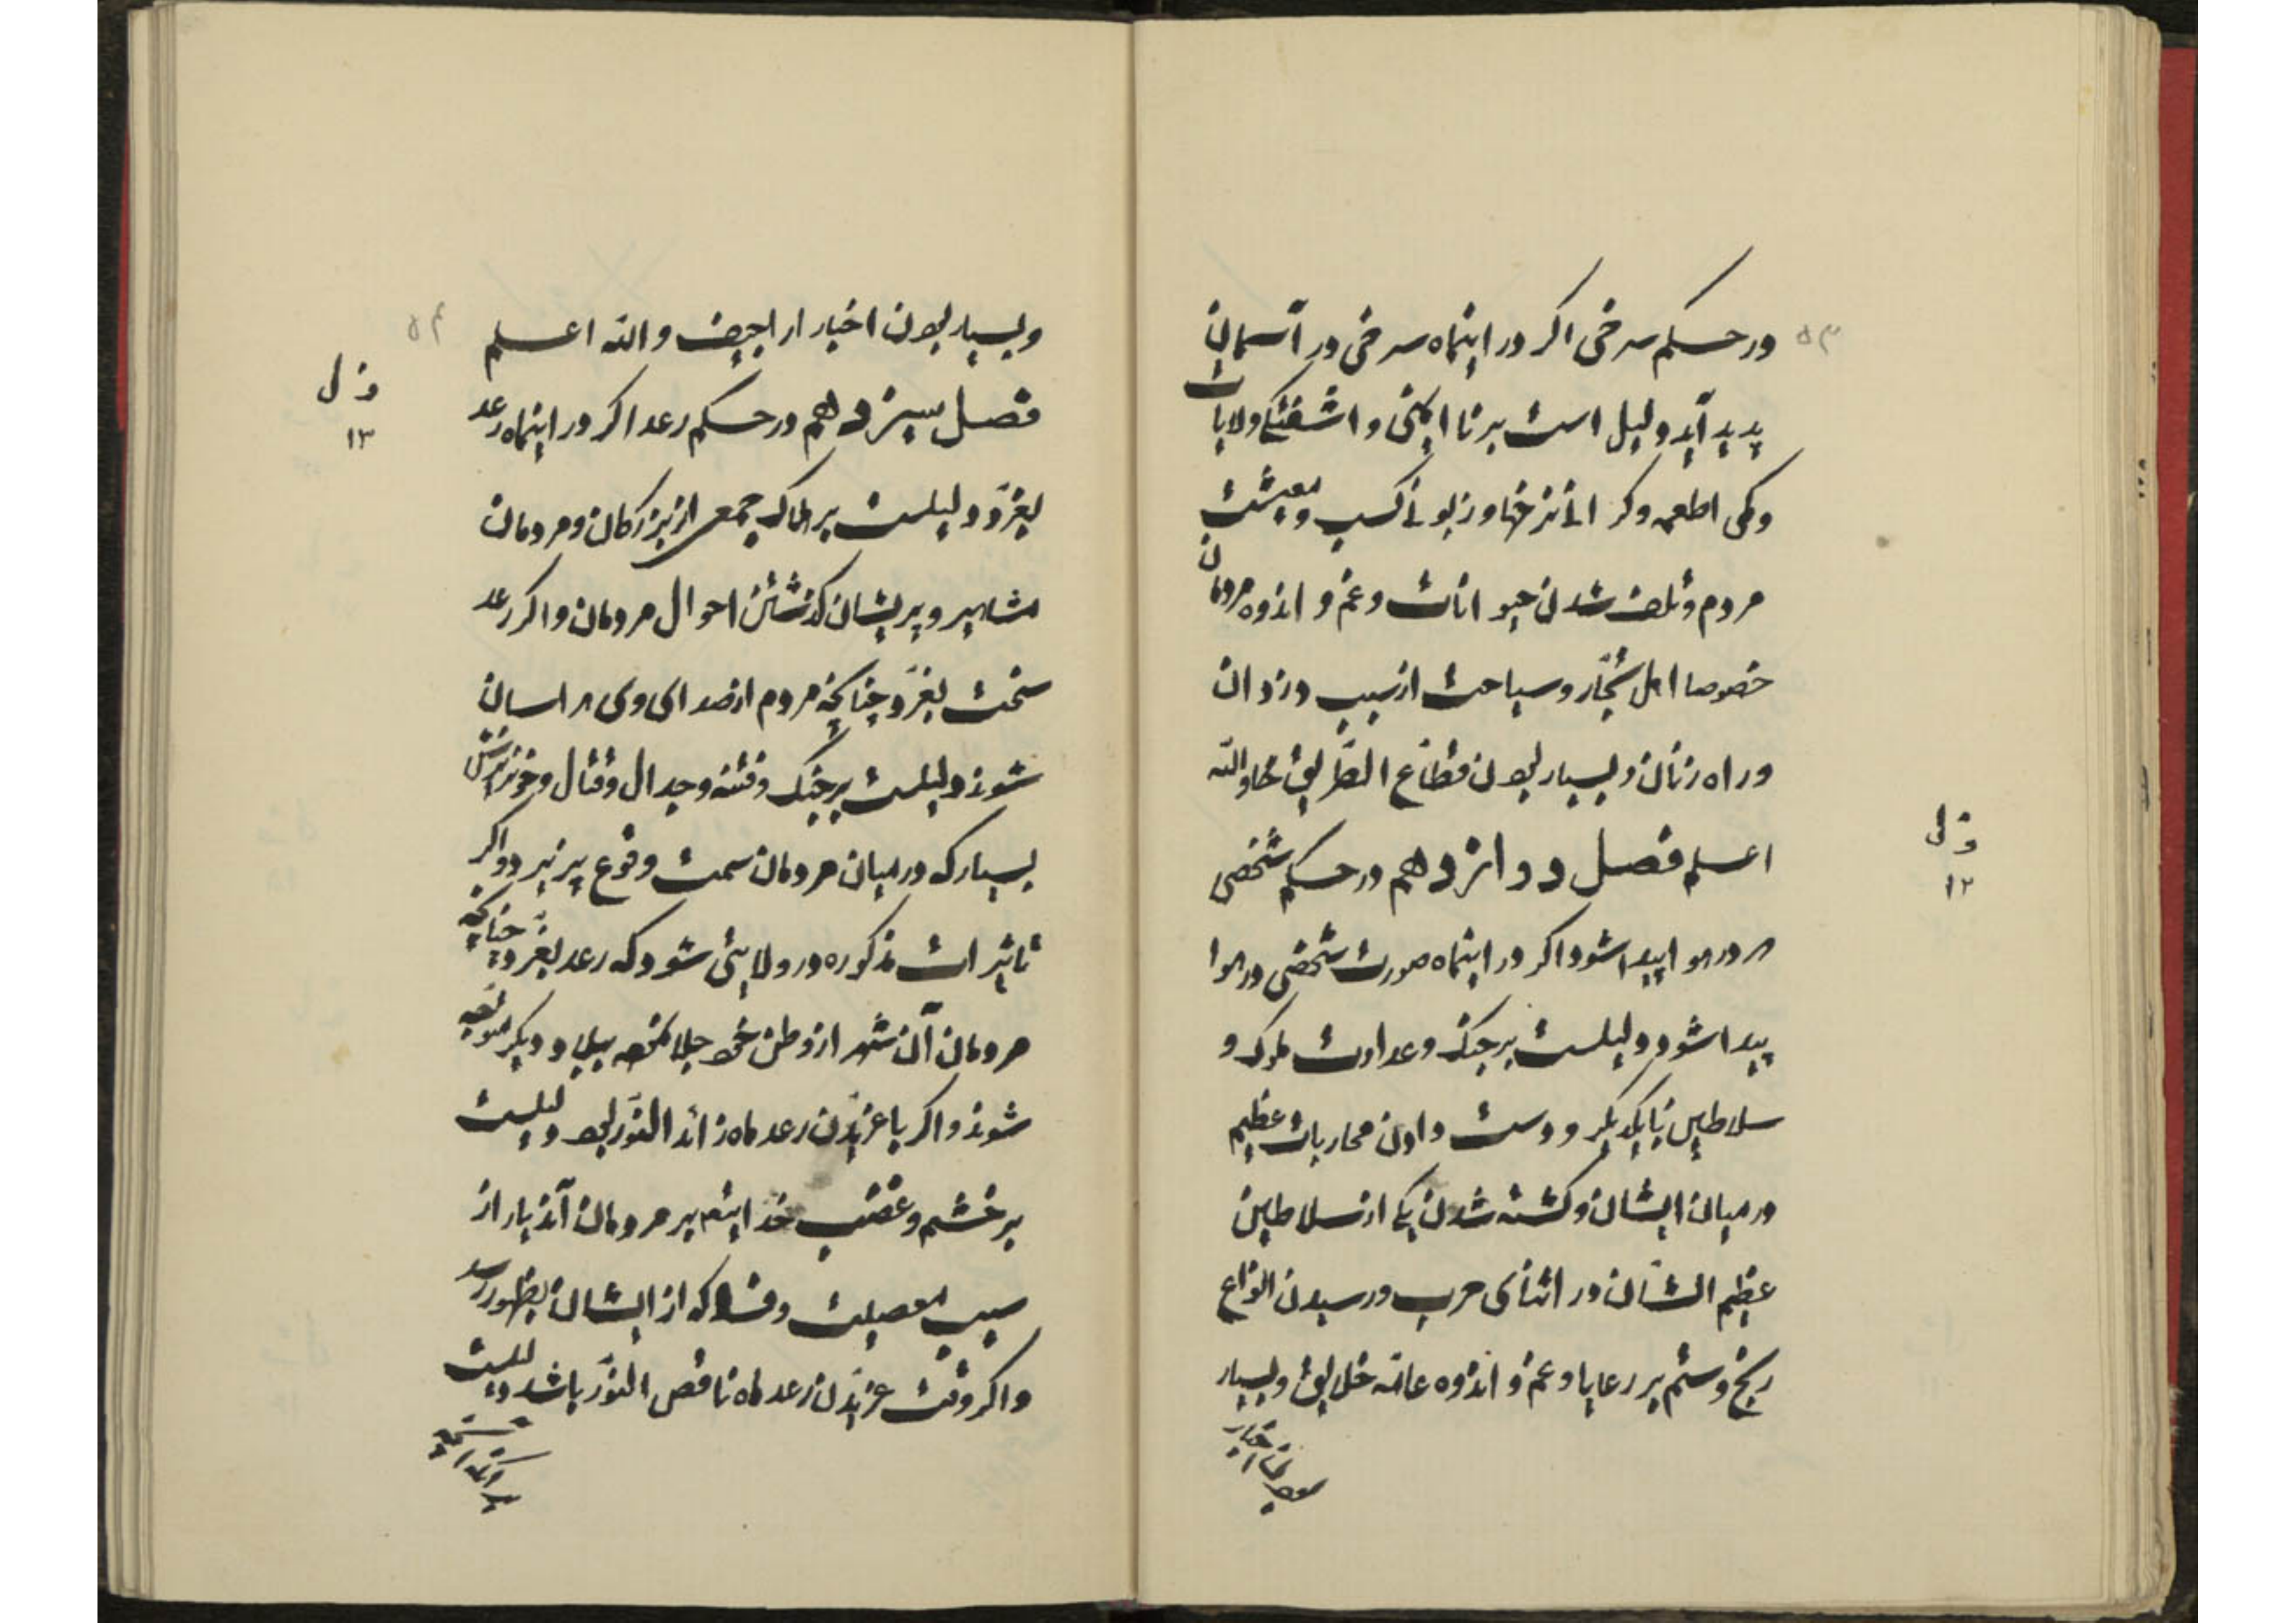 ۵۳
در حکم سرخی اگر در اینماه سرخی در آسمان
پدید آید دلیل است بر نا ایمنی و اشفتگی ولایات
و کمی اطعمه و کر انی نرخها و زبونی کسب و معیشت
مردم و تلف شدن حیوانات و غم و اندوه مردمان
خصوصا اهل تجّار و سیاحت از سبب دزدان
و راه زنان و بسیار بودن قطّاع الطّریق والله
اعلم فصل دوازدهم در حکم شخصی
که در هوا پیدا شود اگر در اینماه صورت شخصی در هوا
پیدا شود دلیلست بر جنک و عداوت ملوک و
سلاطین با یکدیکر و دست دادن محاربات عظیم
در میان ایشان و کشته شدن یکی از سلاطین
عظیم الشّان در اثنای حرب و رسیدن انواع
رنج و ستم بر رعایا و غم و اندوه عامّه خلایق و بسیار
بودن اخبار
ف ل
۱۲
۵۴
و بسیار بودن اخبار اراجیف والله اعلم
فصل سیزدهم در حکم رعد اگر در اینماه رعد
بغرّد دلیلست بر هلاک جمعی از بزرکان و مردمان
مشاهیر و پریشان کذشتن احوال مردمان و اکر رعد
سخت بغرّد چنانچه مردم از صدای وی هراسان
شوند دلیلست بر جنک و فتنه و جدال و قتال و خونریزش
بسیار که در میان مردمان سمت وقوع پزیرد و اکر
تاثیرات مذکوره در ولایتی شود که رعد بغرّد چنانچه
مردمان آن شهر از وطن خود جلا نموده ببلاد دیکر متوجه
شوند و اکر با غریّدن رعد ماه زائد النّور بود دلیلست
بر خشم و غضب خدایتع بر مردمان آندیار از
سبب معصیت و فساد که از ایشان بظهور رسد
و اکر وقت غریّدن رعد ماه ناقص النّور باشد دلیلست
بر آنکه
ف ل
۱۳